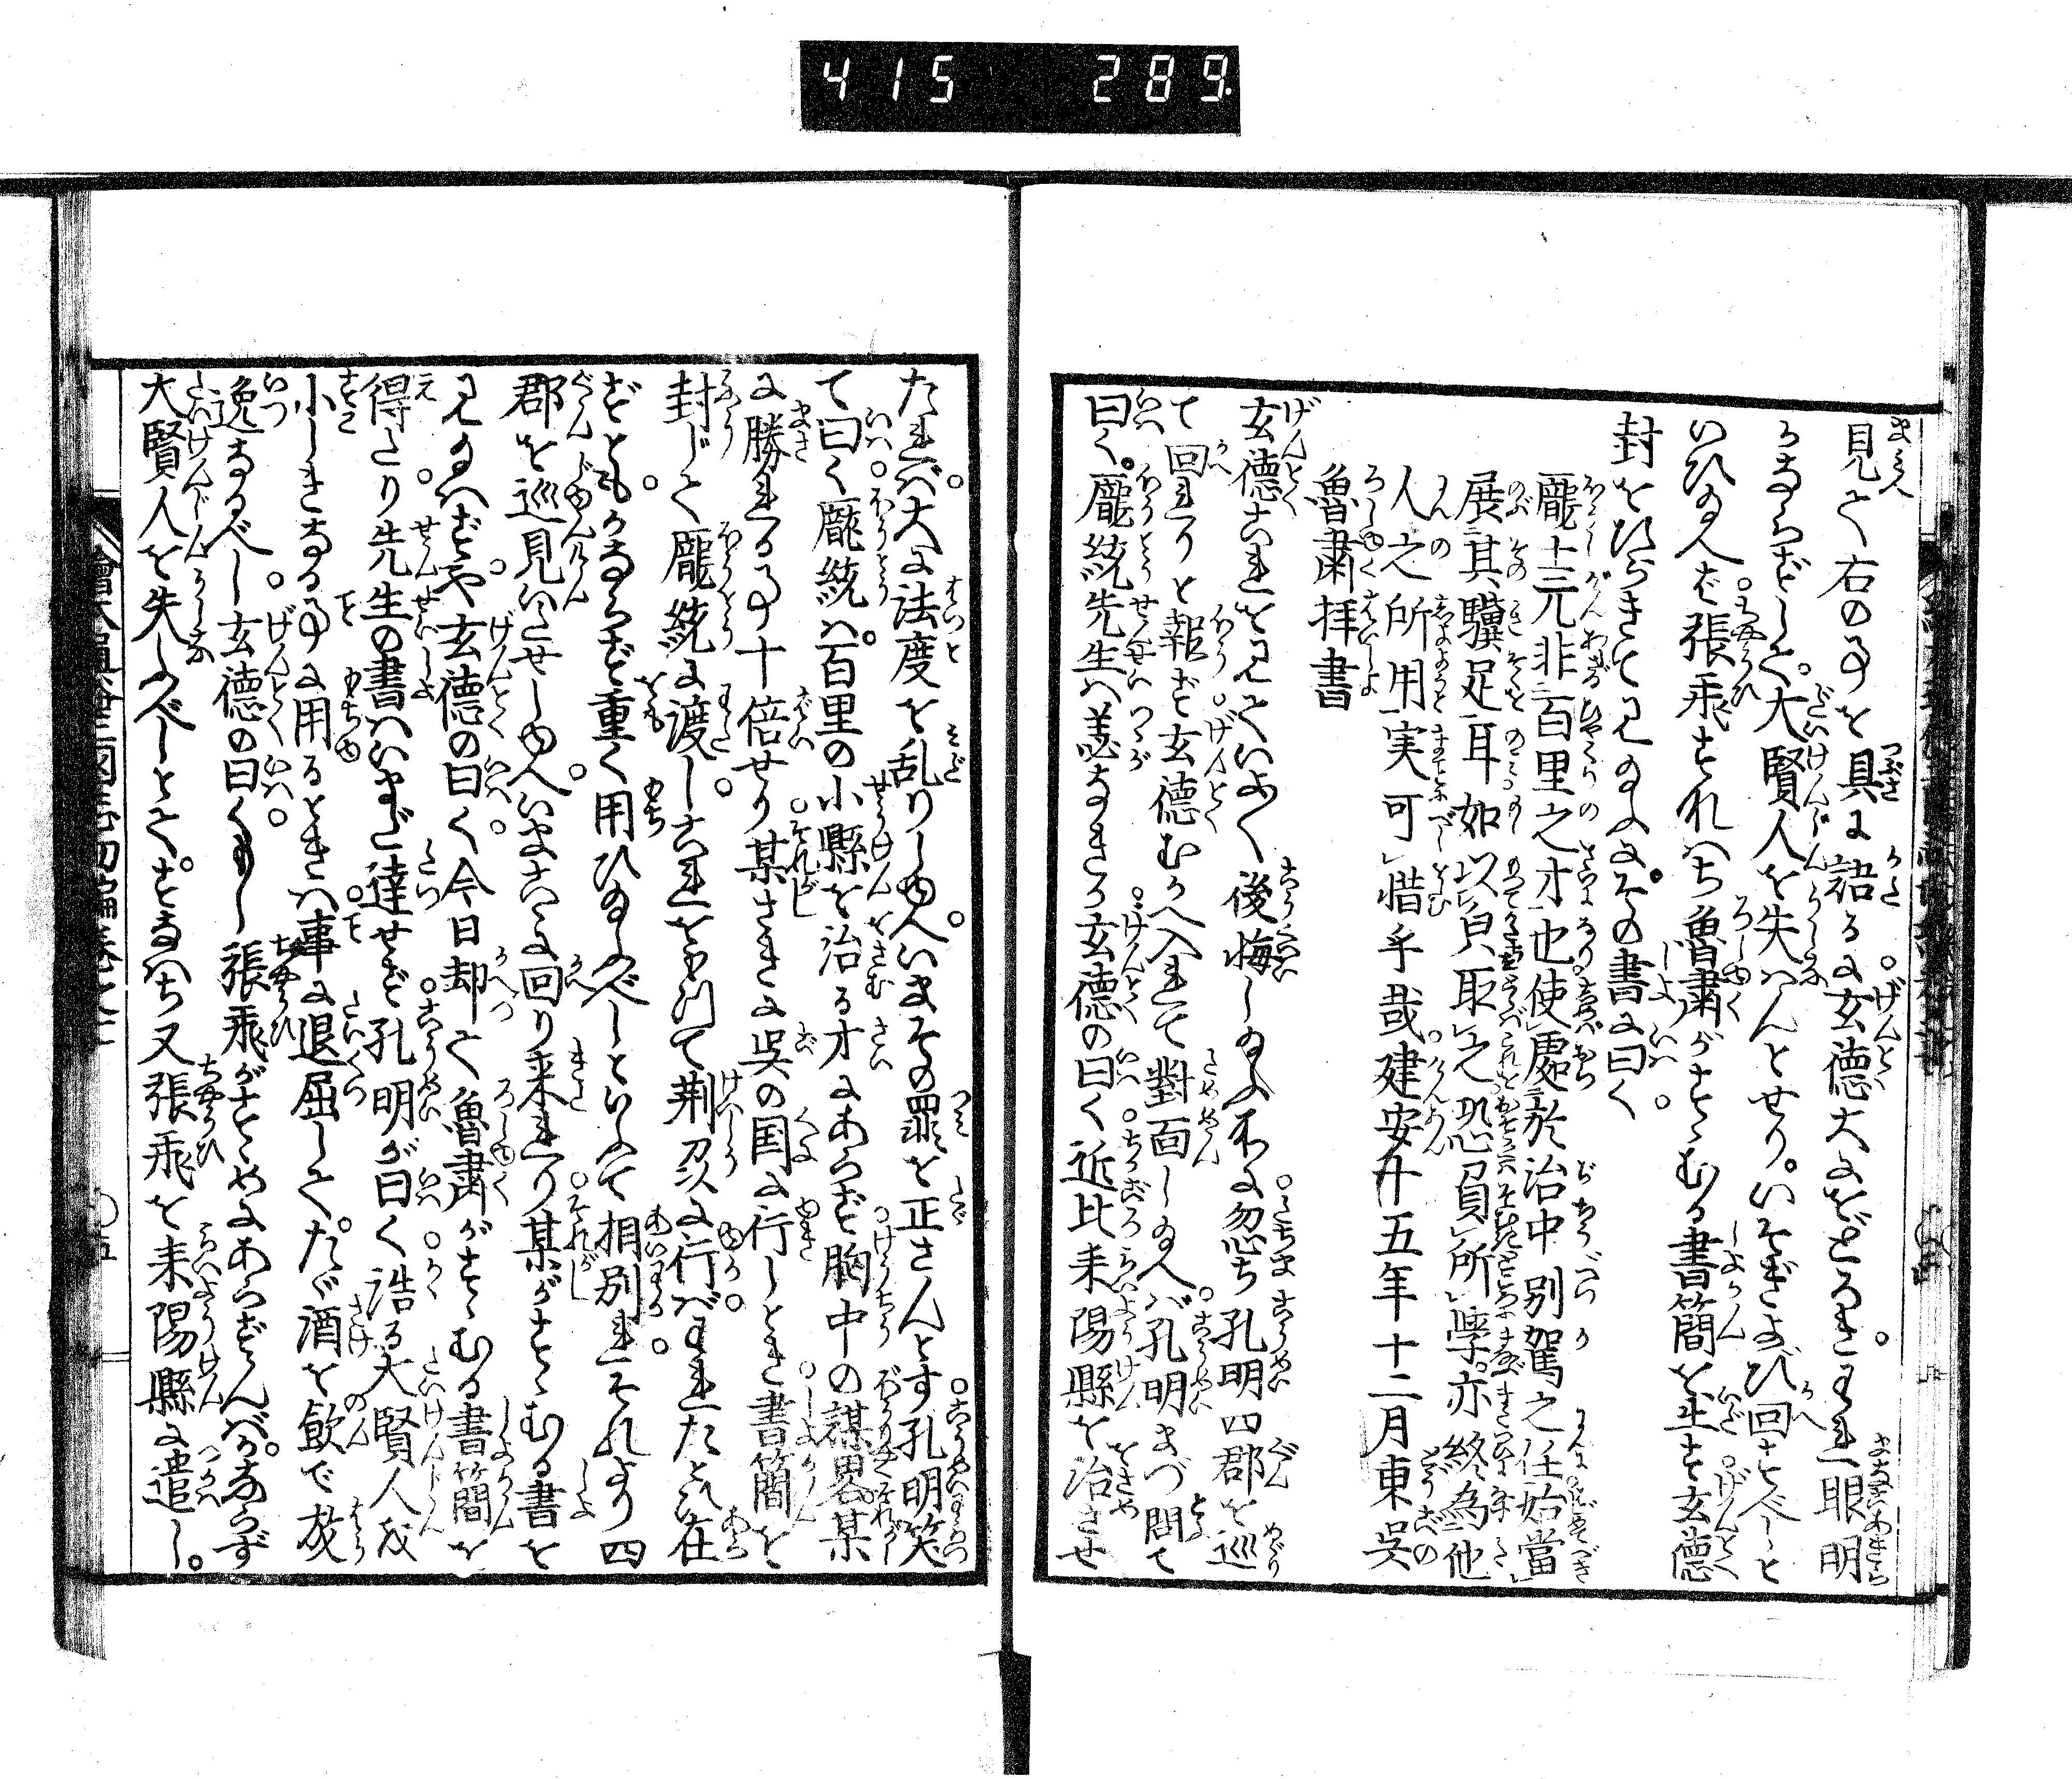 415 289
見て右の事を具に語るに玄徳大にをどろきわれ眼明
かならずして大賢人を失はんとせり。いそぎよび回すべしと
いひ給へば張飛すなはち魯粛がすゝむる書簡を出す玄徳
封をひらきて見給ふに。その書に曰く
龐士元非百里之才也使處於治中別駕之任始當
展其驥足耳如以貌取之恐負所學。亦終為他
人之所用実可惜乎哉建安廿五年十二月東呉
魯粛拝書
玄徳これを見ていよ〳〵後悔し給ふ所に忽ち孔明四郡を巡
て回れりと報ず玄徳むかへ入れて對面し給へば孔明まづ問て
曰く。龐統先生は恙なきか玄徳の曰く近比耒陽縣を治させ
たれば大に法度を乱りしゆへいまその罪を正さんとす孔明笑
て曰く龐統は百里の小縣を治る才にあらず胸中の謀畧某
に勝れる事十倍せり某さきに呉の国に行しとき書簡を
封じて龐統に渡しこれをもつて荊州に行べしわれたとひ在
ずともかならず重く用ひ給ふべしといふて相別れそれより四
郡を巡見いたせしゆへいまこゝに回り来れり某がすゝむる書を
見給はずや玄徳の曰く今日却て魯粛がすゝむる書簡を
得たり先生の書はいまだ達せず孔明が曰く誥る大賢人を
小しきなる事に用るときは事に退屈して。たゞ酒を飲で放
逸なるべし玄徳の曰くもし張飛がすゝめにあらずんば。かならず
大賢人を失ふべしとて。すなはち又張飛を耒陽縣に遣し。
繪本通俗三國志初編巻之二 〇五